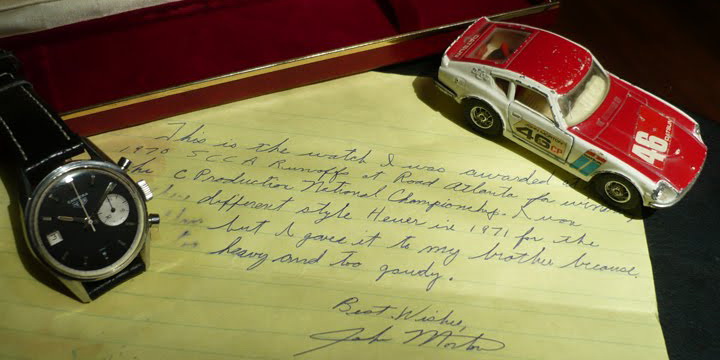 This is the watch I was awarded
1970 SCCA Runoffs at Road Atlanta for winning
the C Production National Championship. I won
different style Heuer in 1971 for the
but I gave it to my brother because
heavy and too gaudy.
Best Wishes,
John Morton
46
46
DATSUN